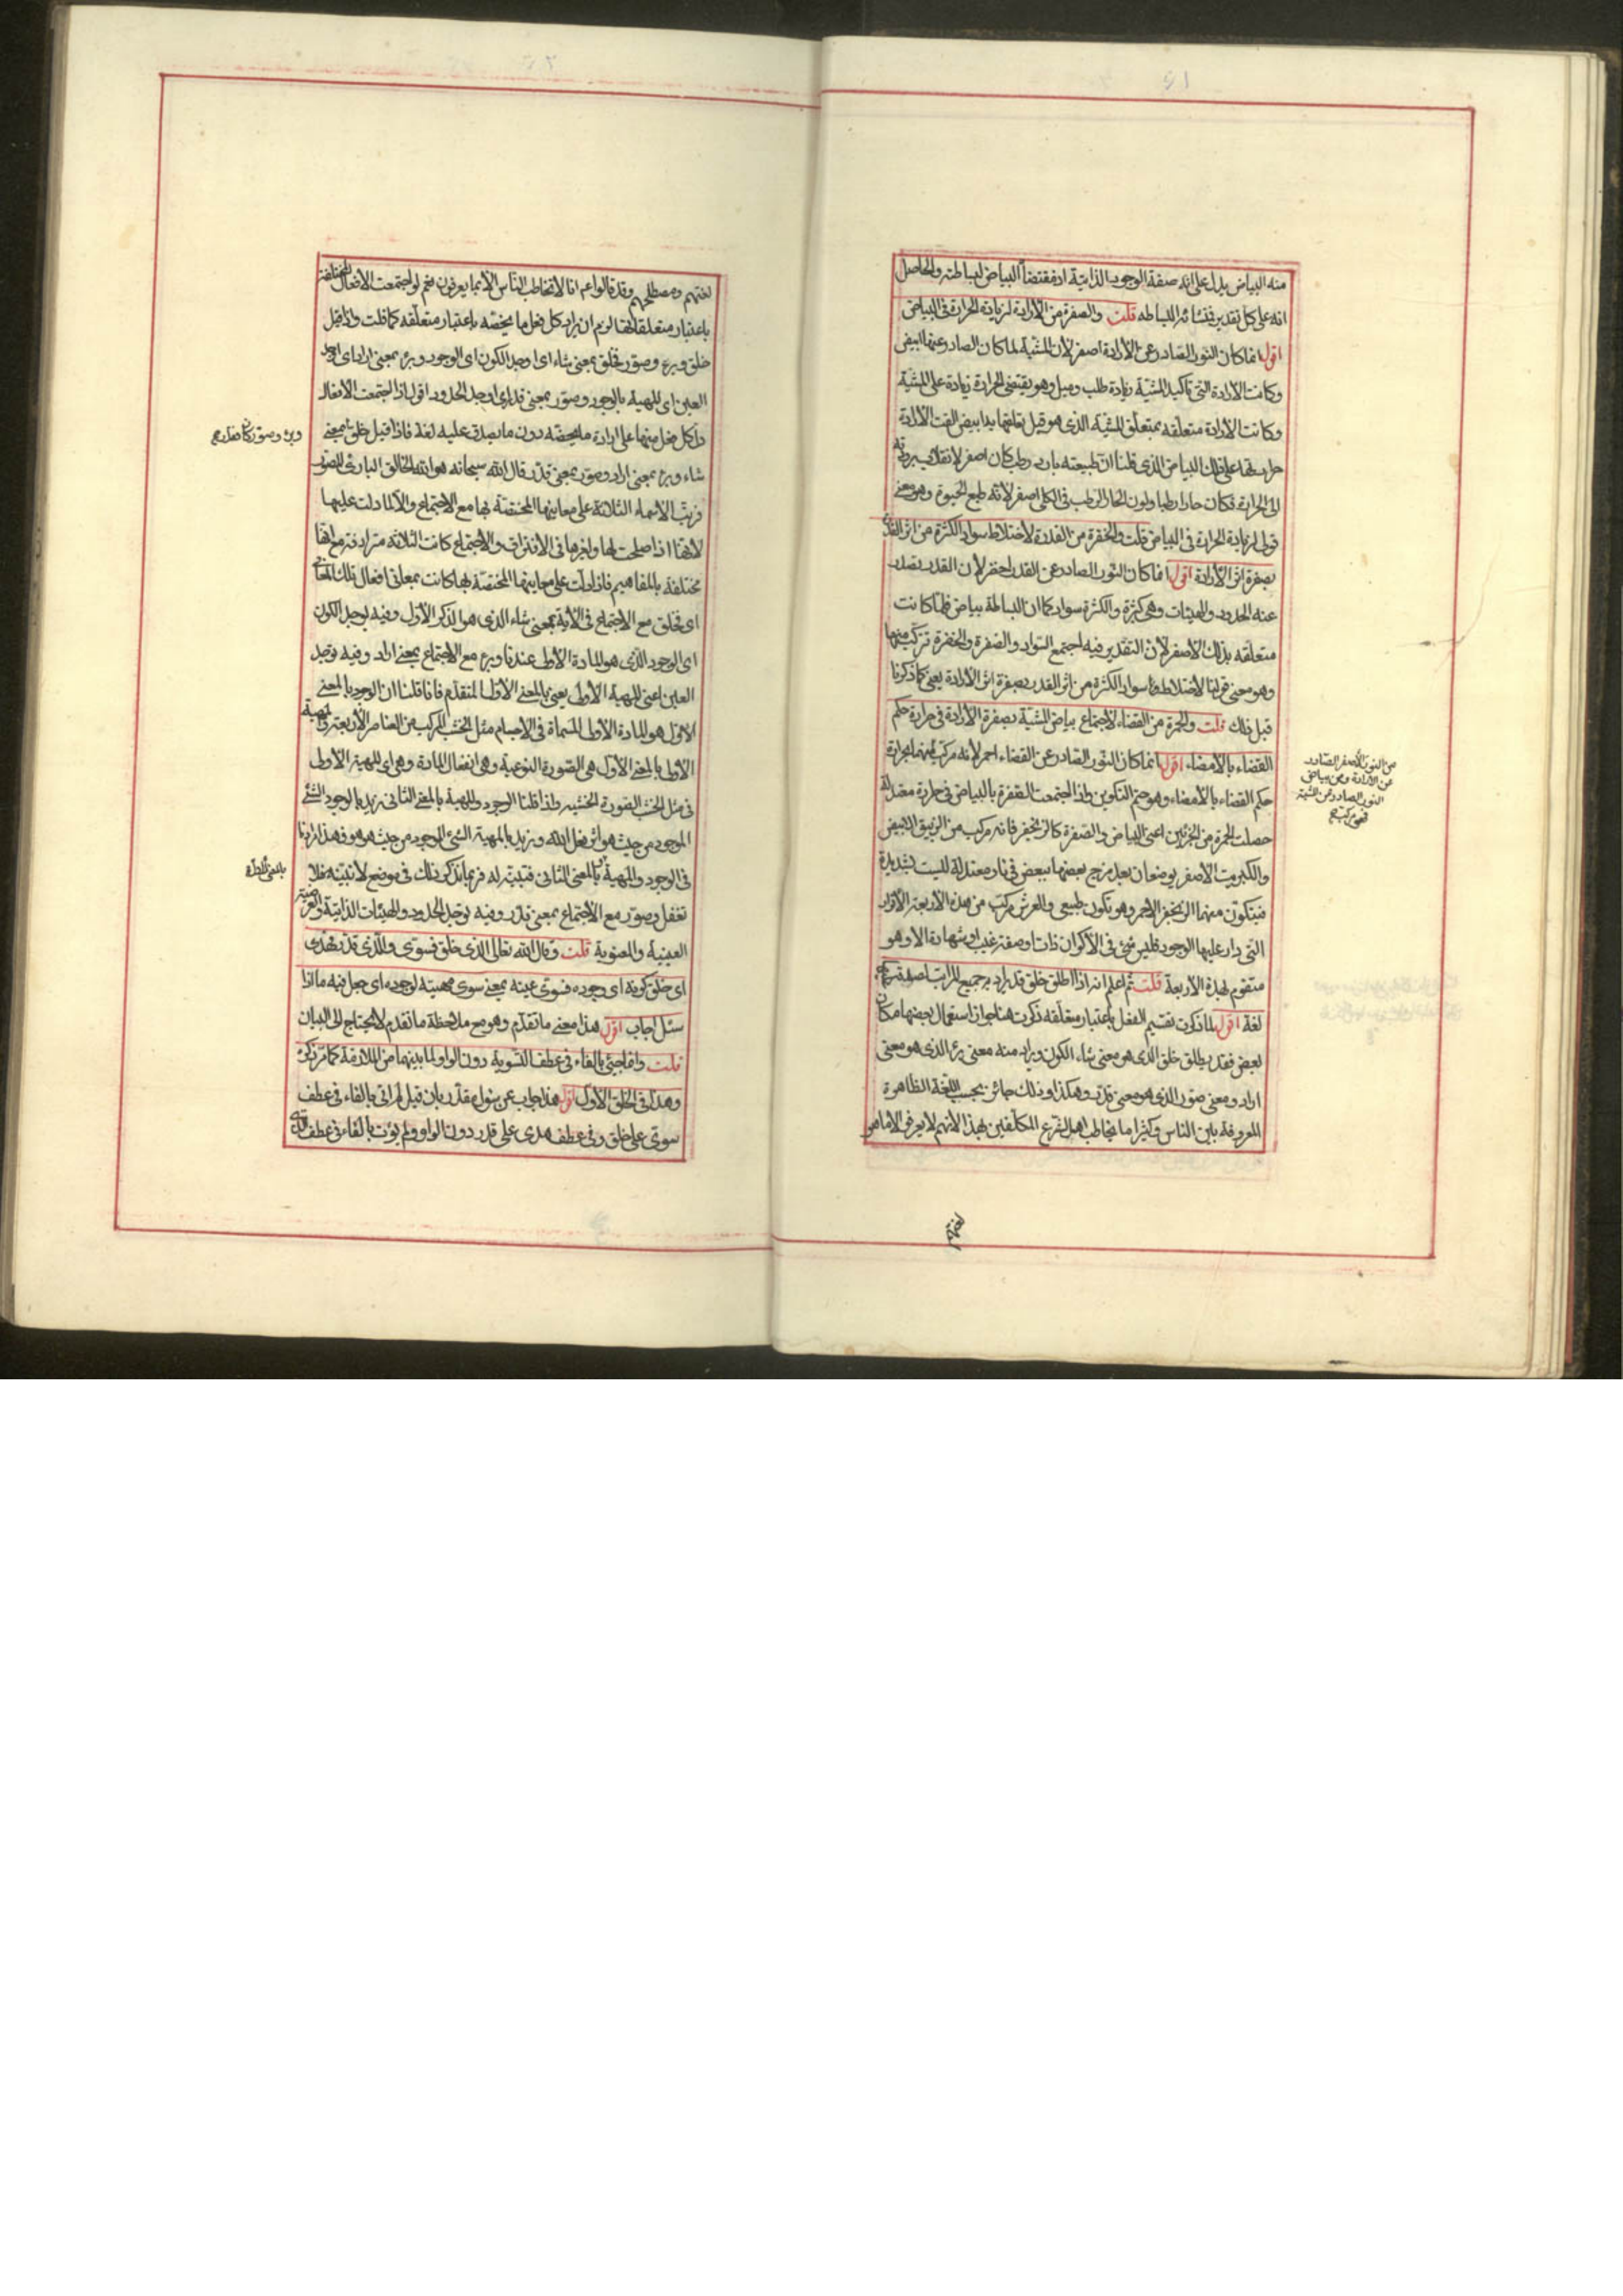 ٤١
منه البياض يدل على انه صفة الوجود الذاتية اذ مقتضا البياض لبساطته والحاصل
انه على كل تقدير فنشائه البساطه قلت والصفرة من الأرادة لزيادة الحرارة فى البياض
اقول انما كان النور الصادر عن الأرادة اصفر لأن المشية لما كان الصادر عنها ابيض
وكانت الأرادة التى تأكيد المشية زيادة طلب وميل وهو يقتضى الحرارة زيادة على المشية
وكانت الأرادة متعلقه بمتعلق المشية الذى هو قبل تعلقها به ابيض القت الأرادة
حرارتها على ذلك البياض الذى قلنا ان طبيعته بارد رطب كان اصفر لانقلاب برودته
الى الحرارة فكان حارا رطبا ولون الحار الرطب فى الكلى اصفر لأنه طبع الحيوة وهو معنى
قولى لزيادة الحرارة فى البياض قلت والخضرة من القدر لأختلاط سواد الكثرة من اثر القدر
بصفرة اثر الأرادة اقول انما كان النور الصادر عن القدر اخضر لأن القدر يصدر
عنه الحدود والهيئات وهى كثرة والكثرة سواد كما ان البساطة بياض فلما كانت
متعلقه بذلك الأصفر لأن التقدير فيه اجتمع السواد والصفرة والخضرة تركبت منهما
وهو معنى قولنا لأختلاط سواد الكثرة من اثر القدر بصفرة اثر الأرادة يعنى كما ذكرنا
قبل ذلك قلت والحمرة من القضاء لأجتماع بياض المشية بصفرة الأرادة فى حرارة حكم
القضاء بالأمضاء اقول انما كان النور الصادر عن القضاء احمر لأنه مركب منهما بحرارة
حكم القضاء بالأمضاء وهو حتم التكوين واذا اجتمعت الصفرة بالبياض فى حرارة معتدلة
حصلت الحمرة من الجزئين اعنى البياض والصفرة كالزنجفر فانه مركب من الزيبق الابيض
والكبريت الأصفر يوضعان بعد مزج بعضهما ببعض فى نار معتدلة ليست بشديدة
فيتكون منهما الزنجفر الاحمر وهو تكون طبيعى والعرش مركب من هذه الأربعة الأنوار
التى دار عليها الوجود فليس شئ فى الأكوان ذات او صفة غيب او شهادة الا وهو
متقوم بهذه الأربعة قلت ثم اعلم انه اذا اطلق خلق قد يراد به جميع المراتب
لغة اقول لما ذكرت تقسيم الفعل باعتبار متعلقه ذكرت هنا جواز استعمال بعضها مكان
بعض فقد يطلق خلق الذى هو معنى شاء الكون ويراد منه معنى برء الذى هو معنى
اراد ومعنى صور الذى هو معنى قدر وهكذا وذلك جائز بحسب اللغة الظاهرة
المعروفة بين الناس وكثيرا ما يخاطب اهل الشرع المكلفين بهذا لأنهم لا يعرفون الا ما هو
من النور الأصفر الصادر
عن الأرادة ومن بياض
النور الصادر عن المشية
فهى مركبة
لغتهم
لغتهم ومصطلحهم وقد قالوا عم انا لا نخاطب الناس الا بما يعرفون نعم لو اجتمعت الأفعال المختلفة
باعتبار متعلقاتها لزم ان يراد كل فعل ما يخصه باعتبار متعلقه كما قلت واذا قيل
خلق وبرء وصور فخلق بمعنى شاء اى اوجد الكون اى الوجود وبرء بمعنى اراد اى اوجد
العين اى المهية بالوجود وصور بمعنى قدر اى اوجد الحدود اقول اذا اجتمعت الأفعال
دل كل فعل منها على ارادة ما يخصه دون ما يصدق عليه لغة فاذا قيل خلق بمعنى
شاء وبرء بمعنى اراد وصور بمعنى قدر قال الله سبحانه هو الله الخالق البارئ المصور
فرتب الأسماء الثلاثة على معانيها المختصة بها مع الاجتماع والا لما دلت عليها
لأنها اذا صلحت لها ولغيرها فى الأفتراق والأجتماع كانت الثلاثه مترادفة مع انها
مختلفة بالمفاهيم فاذا دلت على معانيها المختصة بها كانت بمعانى افعال تلك المعانى
اى فخلق مع الاجتماع فى الأية بمعنى شاء الذى هو الذكر الأول وفيه يوجد الكون
اى الوجود الذى هو المادة الأولى عندنا وبرء مع الأجتماع بمعنى اراد وفيه توجد
العين اعنى المهية الأولى يعنى بالمعنى الأول المتقدم فانا قلنا ان الوجود بالمعنى
الاول هو المادة الأولى المسماة فى الأجسام مثل الخشب المركب من العناصر الأربعة والمهية
الأولى بالمعنى الأول هى الصورة النوعية وهى انفعال المادة وهى اى المهية الأولى
فى مثل الخشب الصورة الخشبيه واذا قلنا الوجود والمهية بالمعنى الثانى نريد بالوجود الشئ
الموجود من حيث هو اثر فعل الله ونريد بالمهية الشئ الموجود من حيث هو هو فهذا مرادنا
فى الوجود والمهية بالمعنى الثانى فتنبه له فربما نذكر ذلك فى موضع لا نبينه فلا
تغفل وصور مع الأجتماع بمعنى قدر وفيه توجد الحدود والهيئات الذاتية والعرضية
العينية والمعنوية قلت وقال الله تعالى الذى خلق فسوى والذى قدر فهدى
اى خلق كونه اى وجوده فسوى عينه بمعنى سوى مهيته لوجوده اى جعل فيه ما اذا
سئل اجاب اقول هذا معنى ما تقدم وهو مع ملاحظة ما تقدم لا يحتاج الى البيان
قلت وانما جيئ بالفاء فى عطف التسوية دون الواو لما بينهما من الملازمة كما مر ذكره
وهذا فى الخلق الأول اقول هذا جواب عن سؤال مقدر بان قيل لم اتى بالفاء فى عطف
سوى على خلق وفى عطف هدى على قدر دون الواو ولم يؤت بالفاء فى عطف
وبرء وصور كان معنى